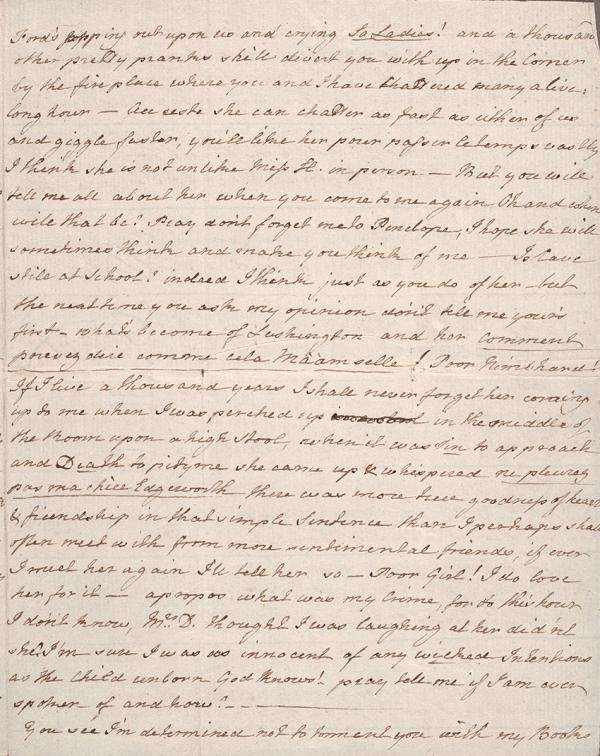 Ford's popping out upon us and crying So Ladies! and a thousand
other pretty pranks she'll divert you with up in the Corner
by the fire place where you and I have chattered many a live,
long hour — Au reste she can chatter as fast as either of us
and giggle faster, you'll like her pour passer le temps vastly
I think she is not unlike Miss H. in person — But you will
tell me all about her when you come to me again Oh and when
will that be? Pray don't forget me to Penelope, I hope she will
sometimes think and make you think of me — Is Cave
still at School? indeed I think just as you do of her – but
the next time you ask my opinion don't tell me your's
first – what's become of Lushington and her comment
pouvez dire comme cela Ma'amselle! Poor
If I live a thousand years I shall never forget her coming
up to me when I was perched up in the middle of
the Room upon a high Stool, when it was Sin to approach
and Death to pity me she came up & whispered ne pleurez
pas ma chère Edgeworth there was more true goodness of heart
& friendship in that simple Sentence than I perhaps shall
often meet with from more sentimental friends, if ever
I meet her again I'll tell her so — Poor Girl! I do love
her for it — apropos what was my Crime, for to this hour
I don't know, Mrs. D. thought I was laughing at her did'nt
she? I'm sure I was as innocent of any wicked Intentions
as the Child unborn God knows! pray tell me if I am ever
spoken of and how? - - -
You see I'm determined not to torment you with my Books